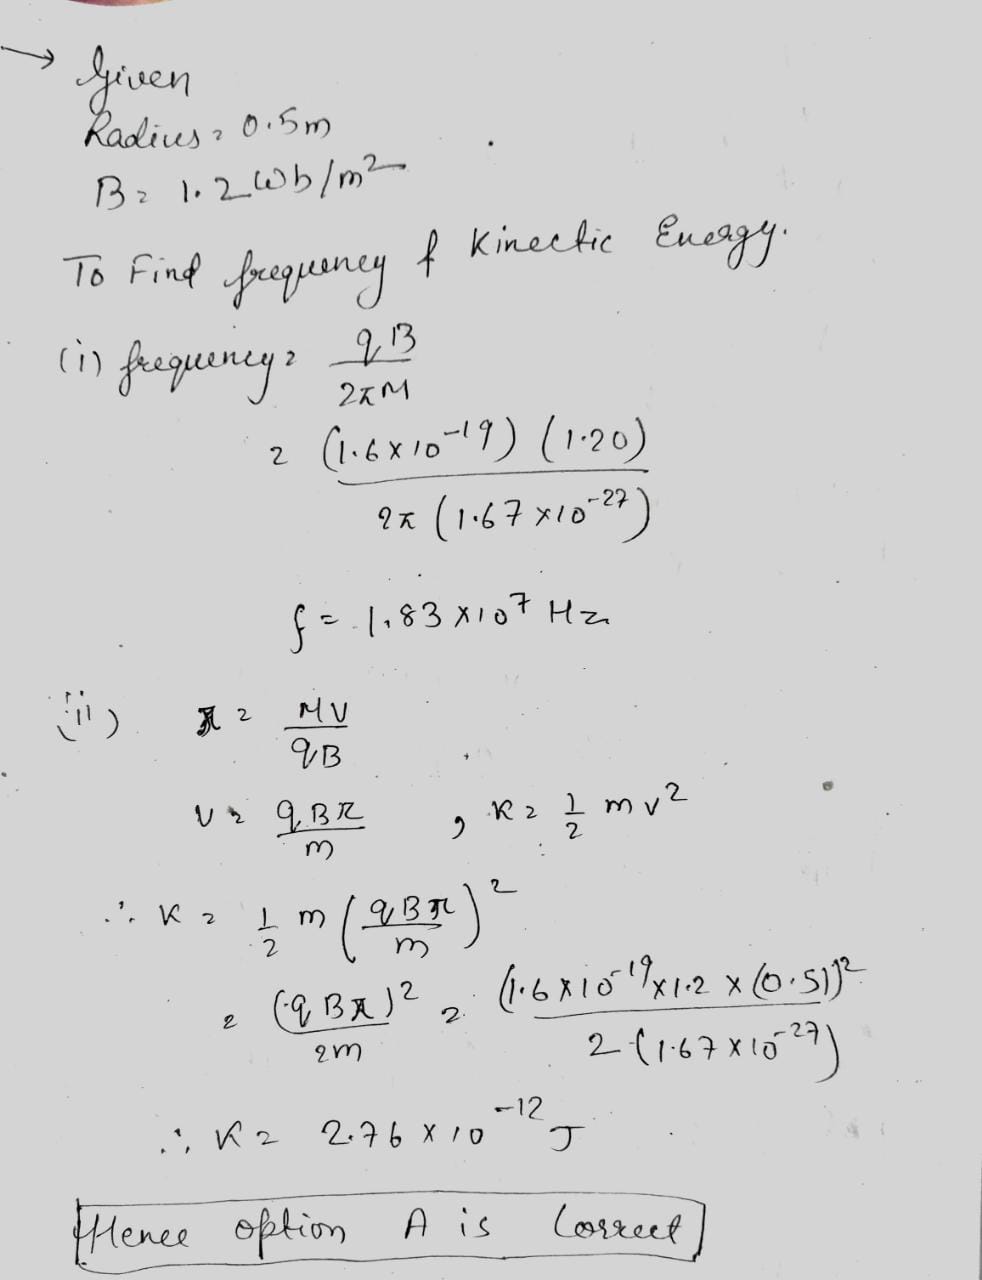 → Given
Radius = 0.5m
B = 1.2 Wb/m²
To Find frequency & Kinectic Energy.
(i) frequency = qB / 2πM
= (1.6×10⁻¹⁹) (1.20) / 2π (1.67×10⁻²⁷)
f = 1.83×10⁷ Hz
(ii) r = MV / qB
v = qBr / m , K = 1/2 mv²
∴ K = 1/2 m (qBr / m)²
= (qBr)² / 2m = (1.6×10⁻¹⁹×1.2×(0.5))² / 2(1.67×10⁻²⁷)
∴ K = 2.76×10⁻¹² J
Hence option A is Correct